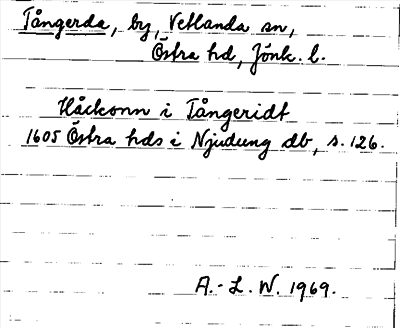 Tångerda, by, Vetlanda sn,
Östra hd, Jönk. l.
Håckonn i Tångeridt
1605 Östra hds i Njudung db, s. 126.
A.-L. W. 1969.